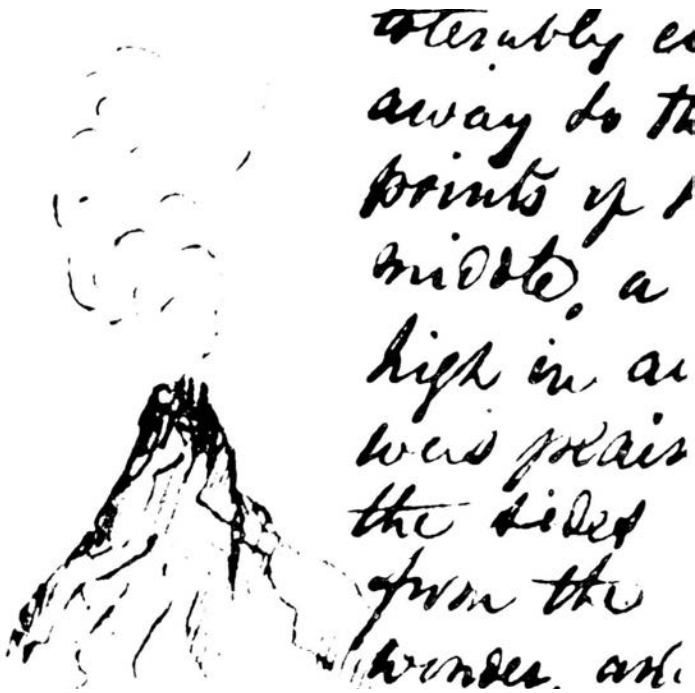 tolerably
away to th
points of
middle, a
high in
were plain
the sides
from the
wonder, and